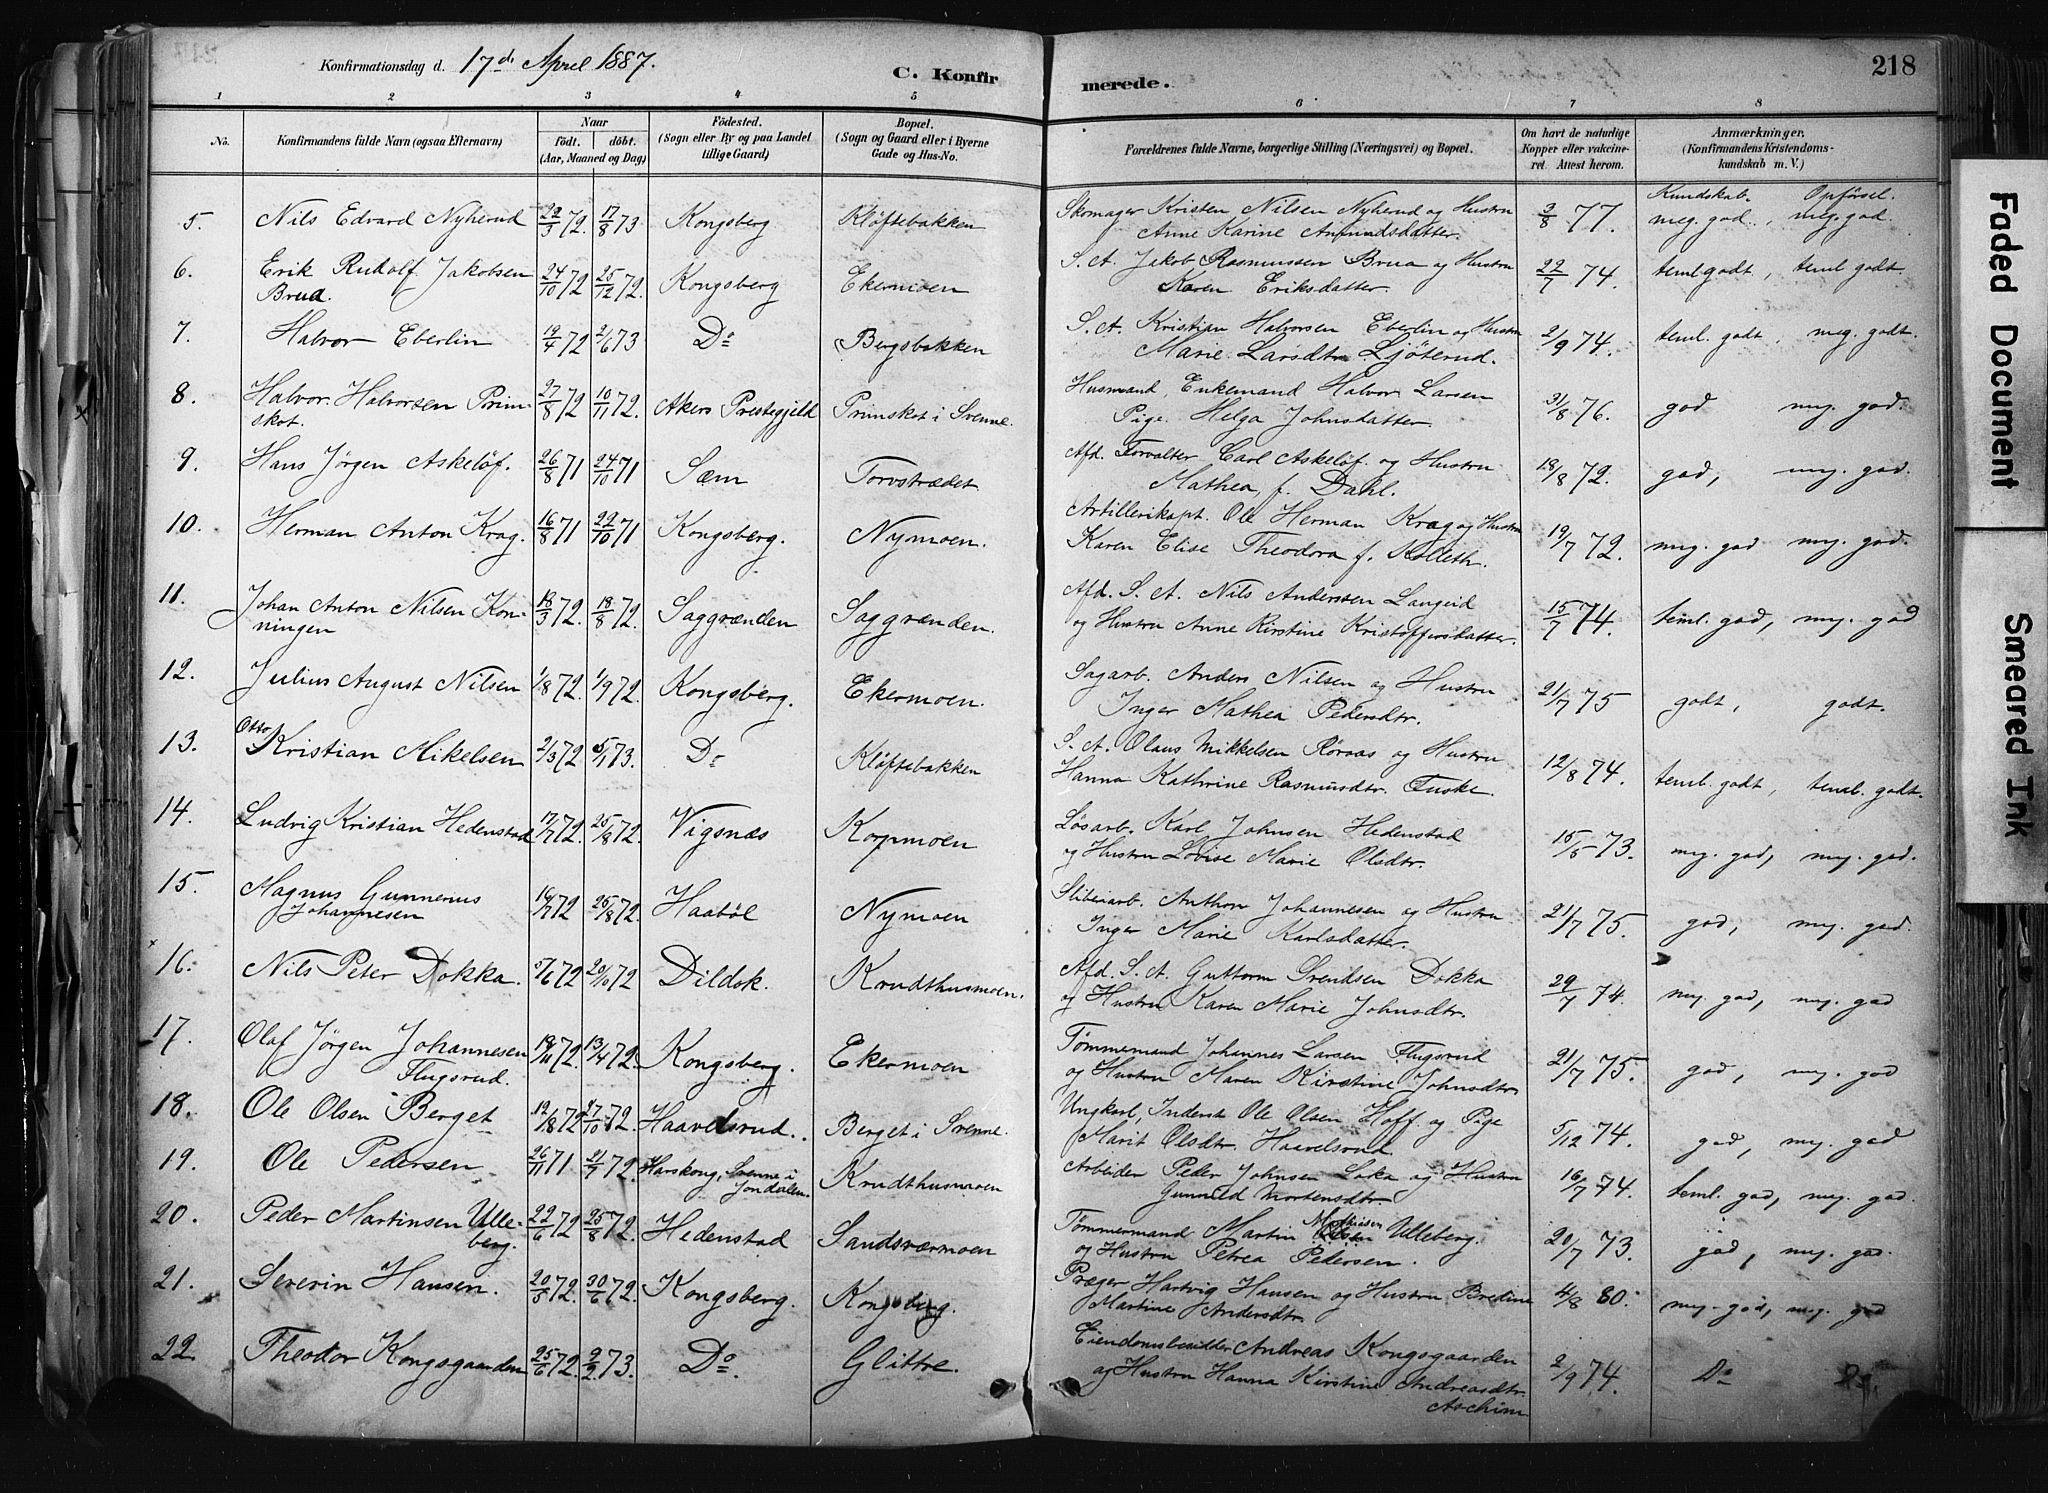 Konfirmationsdag d. 17de April 1887. C. Konfirmerede. 218
1 2 3 4 5 6 7 8
No. Konfirmandens fulde Navn (ogsaa Efternavn) Naar født. døbt. (Aar, Maaned og Dag) Fødested. (Sogn eller By og paa Landet tillige Gaard) Bopæl. (Sogn og Gaard eller i Byerne Gade og Hus-No. Forældrenes fulde Navne, borgerlige Stilling (Næringsvei) og Bopæl. Om havt de naturlige Kopper eller vaccineret. Attest herom. Anmærkninger. (Konfirmandens Kristendomskundskab m. V.)
Kundskab. Opførsel.
5. Nils Edvard Nyherud 22/3 72. 17/8 73 Kongsberg Kløftebakken Skomager Kristen Nilsen Nyherud og Hustru 3/8 77. meg. god, meg. god.
Anne Karine Amundsdatter.
6. Erik Rudolf Jakobsen 24/10 72 25/12 72. Kongsberg Ekermoen S. A. Jakob Rasmussen Brua og Hustru 22/7 74. teml godt, teml godt.
Brua. Karen Eriksdatter.
7. Halvor Eberlin 19/4 72 2/6 73 Do Bergsbakken S. A. Kristian Halvorsen Eberlin og Hustru 2/9 74. teml. godt, meg. godt.
Marie Larsdtr. Ljøterud.
8. Halvor Halvorsen Prim- 27/8 72 10/11 72. Akers Prestegjeld Primskot i Svenne. Husmand, Enkemand Halvor Larsen 31/8 76. god meg. god.
skot. Pige Helga Johnsdatter.
9. Hans Jørgen Askeløf. 26/8 71 24/10 71 Sæm Torvstrædet Afd. Forvalter Carl Askeløf og Hustru 18/8 72. god, meg. god.
Mathea f. Dahl.
10. Herman Anton Krag. 16/8 71 22/10 71 Kongsberg. Nymoen. Artillerikapt. Ole Herman Krag og Hustru 19/7 72. meg. god meg. god.
Karen Elise Theodora f. Kolleth.
11. Johan Anton Nilsen Kon- 18/3 72. 18/8 72. Saggrænden Saggrænden. Afd. S. A. Nils Andersen Langeid 15/7 74. teml. god, meg. god
ningen og Hustru Anne Kirstine Kristoffersdatter.
12. Julius August Nilsen 1/8 72. 1/9 72. Kongsberg. Ekermoen. Sagarb. Anders Nilsen og Hustru 21/7 75 godt, godt.
Inger Mathea Pedersdtr.
13. Otto Kristian Mikelsen 2/3 72 5/1 73. Do Kløftebakken S. A. Olaus Mikkelsen Røraas og Hustru 12/8 74. teml. godt, teml. godt.
Hanna Kathrine Rasmusdtr. Fuske.
14. Ludvig Kristian Hedenstad 17/7 72. 25/8 72. Vigsnæs Korpmoen Løsarb. Karl Johnsen Hedenstad 15/5 73. meg. god, meg. god.
og Hustru Lovise Marie Olsdtr.
15. Magnus Gunnerius 14/7 72 25/8 72. Haabøl Nymoen Sliberarb. Anthon Johannesen og Hustru 21/7 75. god, meg. god.
Johannesen Inger Marie Karlsdatter.
16. Nils Peter Dokka. 5/6 72 20/10 72 Dildok. Krudthusmoen. Afd. S. A. Guttorm Svendsen Dokka 29/7 74. meg. god, meg. god
og Hustru Karen Marie Johnsdtr.
17. Olaf Jørgen Johannesen 18/11 72. 13/4 72. Kongsberg. Ekermoen Tømmermand Johannes Larsen Flugsrud 21/7 75. god, meg. god
Flugsrud. og Hustru Maren Kirstine Johnsdtr.
18. Ole Olsen Berget 19/8 72 27/10 72. Haavelsrud. Berget i Svenne. Ungkarl, Inderst Ole Olsen Hoff og Pige 5/12 74. god, meg. god
Marit Olsdtr. Haavelsrud.
19. Ole Pedersen 26/11 71 21/7 72. Harskong, Svenne i Krudthusmoen Arbeider Peder Johnsen Loka og Hustru 16/7 74. teml. god, meg. god.
Jondalen. Gunnild Mortensdtr.
20. Peder Martinsen Ulle- 22/6 72 25/8 72. Hedenstad Sandsværmoen Tømmermand Martin Mathiasen Ulleberg. 20/7 73. god, meg. god.
berg. og Hustru Petrea Pedersen.
21. Severin Hansen. 20/5 72. 30/6 72. Kongsberg. Kongsberg. Præger Hartvig Hansen og Hustru Bredine 4/8 80. meg. god, meg. god
Martine Andersdtr
22. Theodor Kongsgaarden 25/6 72. 2/2 73. Do. Glittre. Eiendomsbesidder Andreas Kongsgaarden 2/9 74. Do Do.
og Hustru Hanna Kirstine Andreasdtr.
Aschim
Faded Document
Smeared Ink